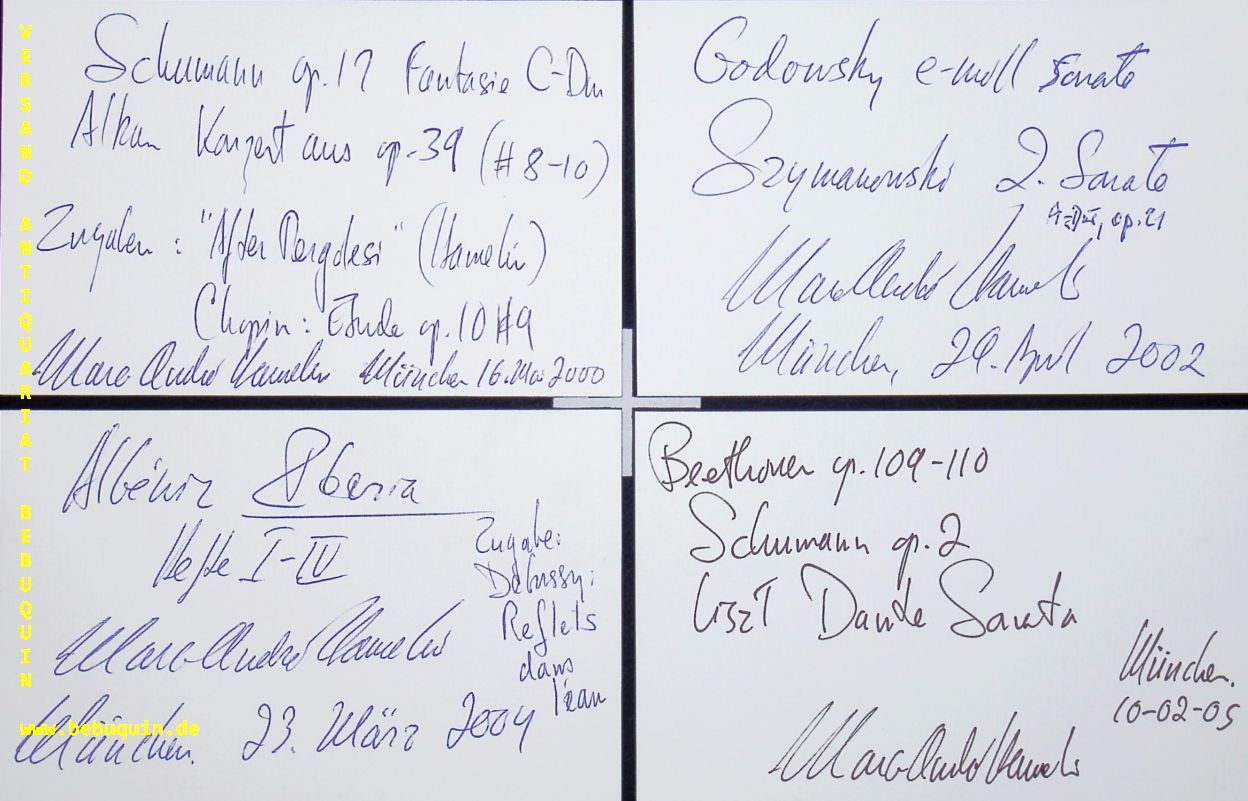 Schumann op. 17 Fantasie C-Dur
Alkan Konzert aus op. 39 (#8-10)
Zugaben : "After Pergolesi" (Hamelin)
Chopin : Etude op. 10 #9
Marc-André Hamelin München 16. Mai 2000
Godowsky e-moll Sonate
Szymanowski 2. Sonate
A-Dur, op. 21
Marc-André Hamelin
München, 29. April 2002
Albéniz Iberia
Hefte I-IV
Zugabe:
Debussy:
Reflets
dans
l'eau
Marc-André Hamelin
München. 23. März 2004
Beethoven op. 109-110
Schumann op. 2
Liszt Dante Sonata
München.
10-02-05
Marc-André Hamelin
VERSAND ANTIQUARIAT BEBUQUIN
www.bebuquin.de